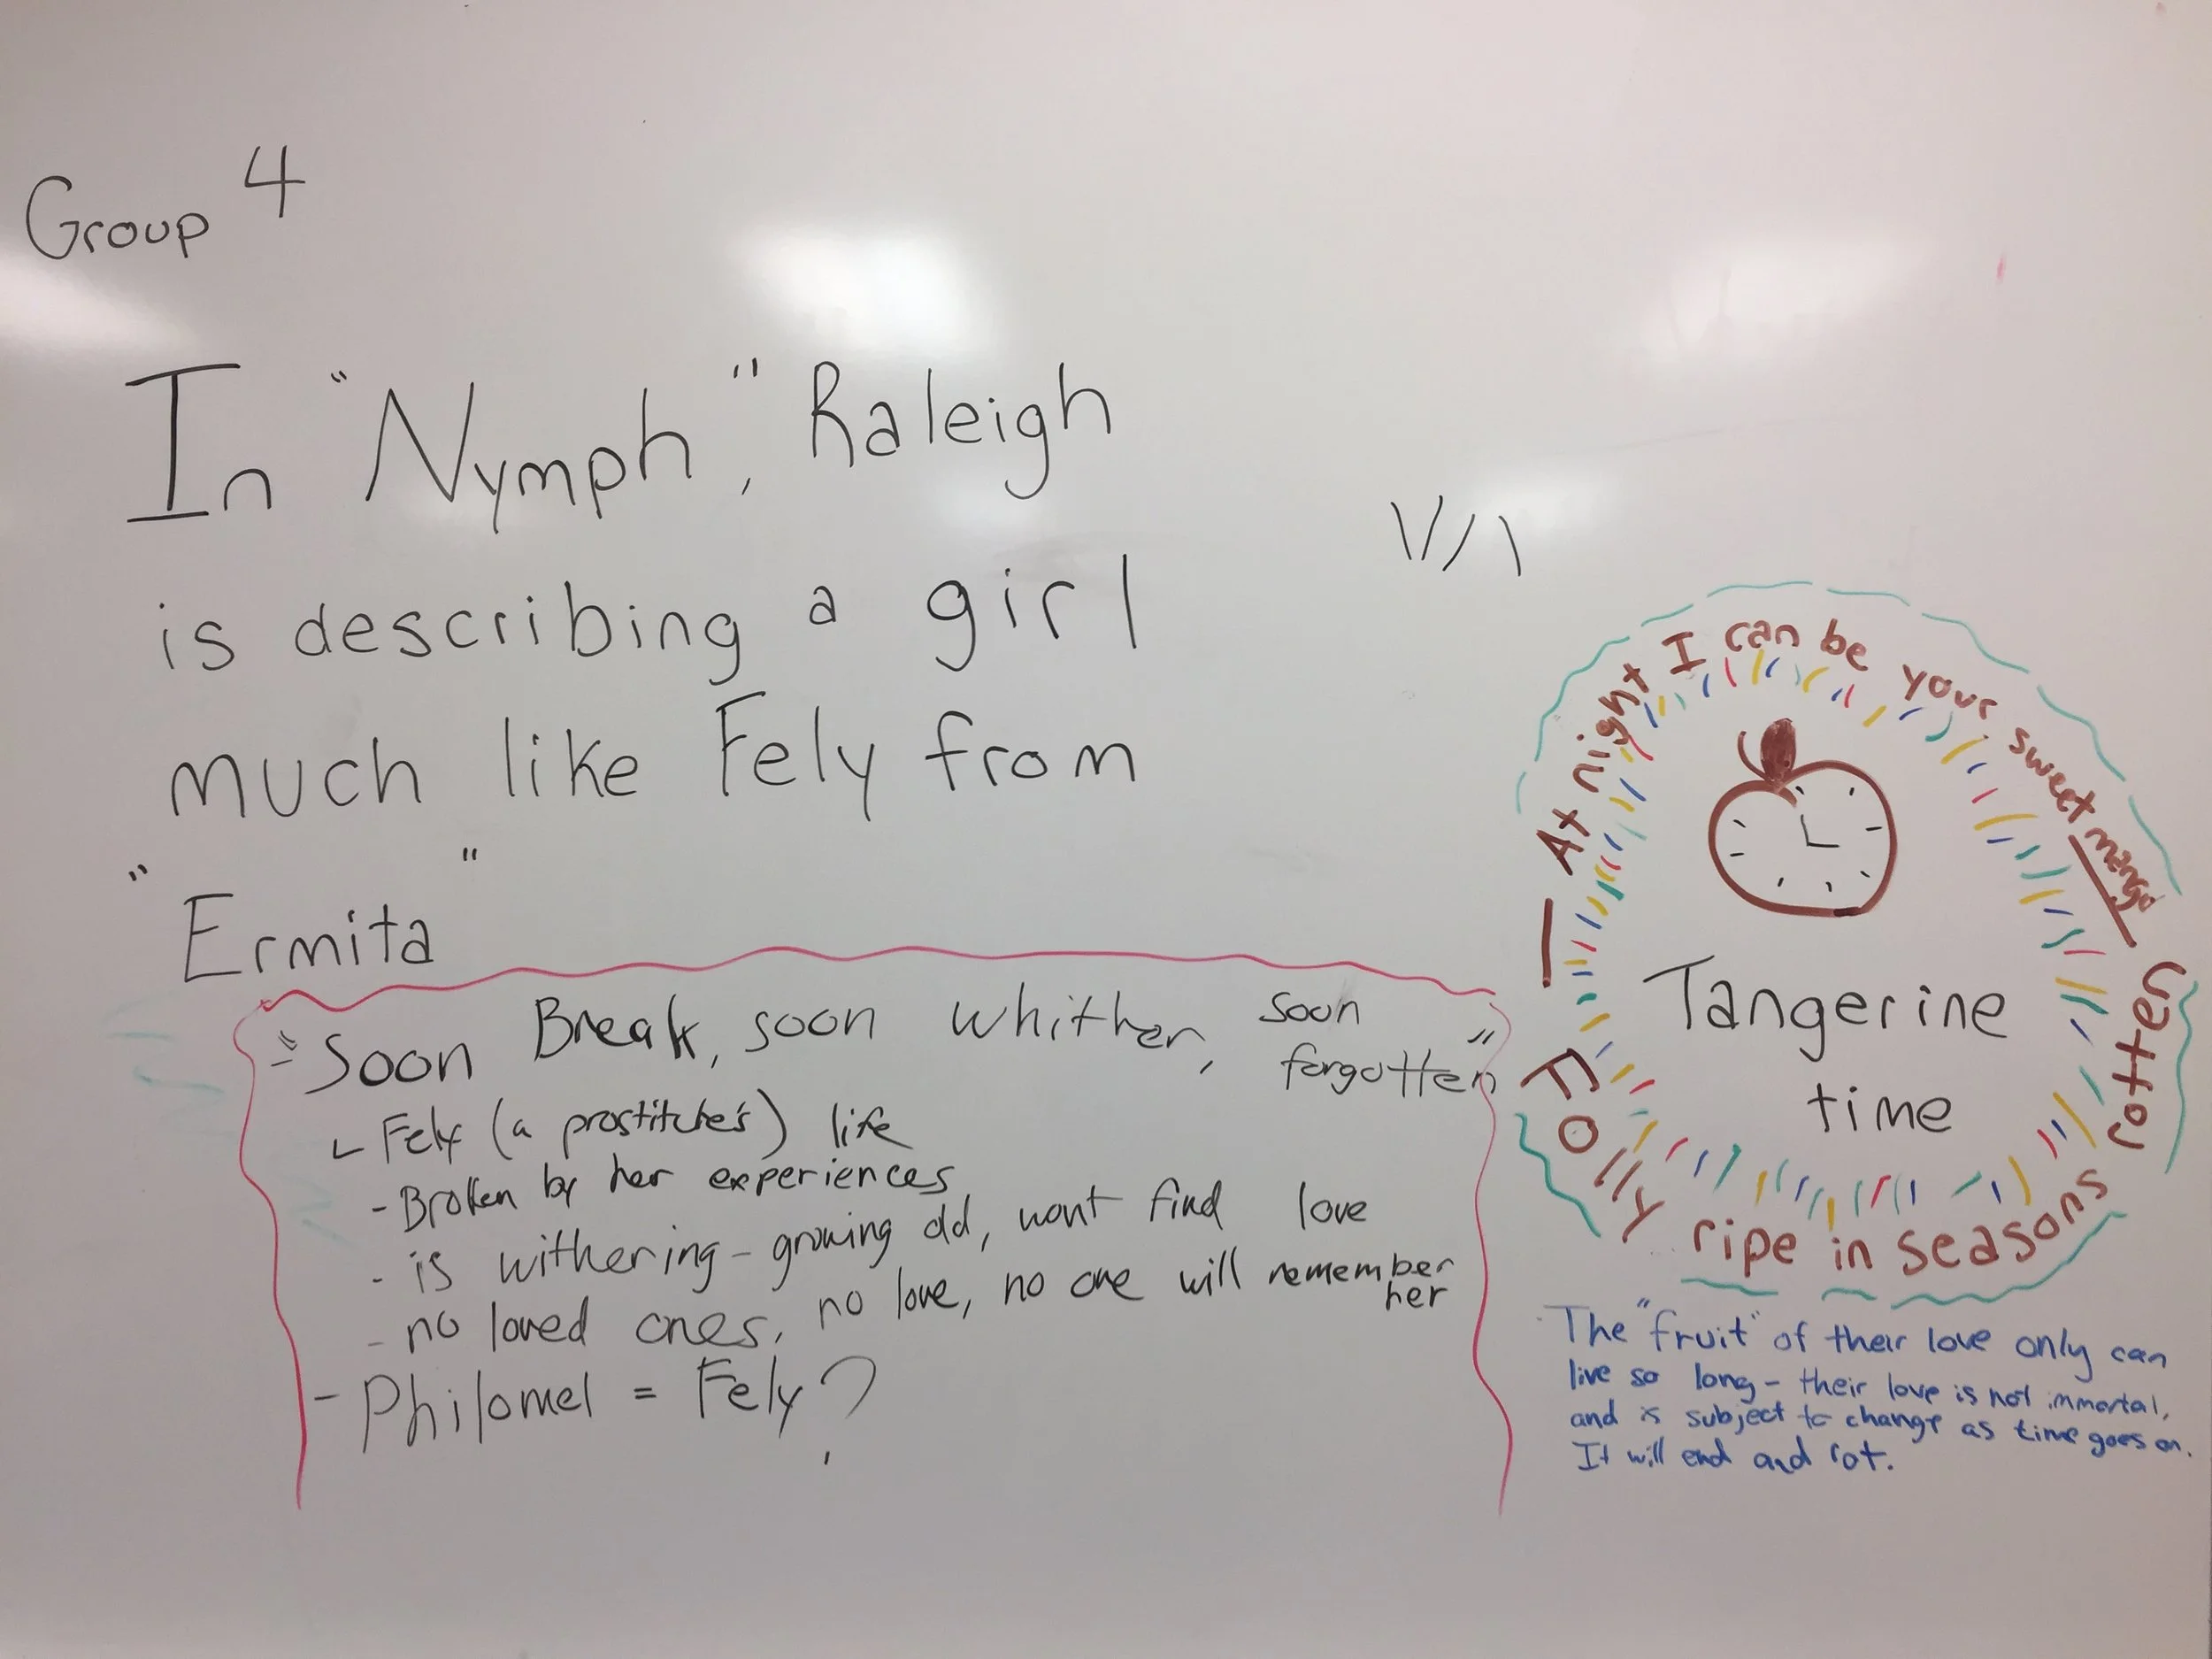 Group 4
In "Nymph", Raleigh
is describing a girl
much like Fely from
"Ermita"
"Soon Break, soon whither, soon
forgotten"
Fely (a prostitute's) life
- Broken by her experiences
- is withering - growing old, wont find love
- no loved ones, no love, no one will remember
her
- Philomel = Fely?
At night I can be your sweet mango
Folly ripe in seasons rotten
Tangerine
time
The "fruit" of their love only can
live so long - their love is not immortal,
and is subject to change as time goes on.
It will end and rot.